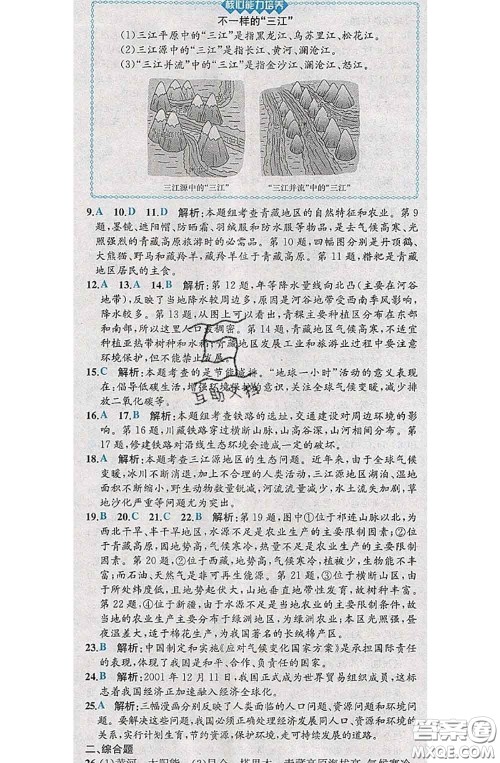 核心能力培养
不一样的“三江”
(1)三江平原中的“三江”是指黑龙江、乌苏里江、松花江。
(2)三江源中的“三江”是指长江、黄河、澜沧江。
(3)“三江并流”中的“三江”是指金沙江、澜沧江、怒江。
三江源中的“三江” “三江并流”中的“三江”
9.A 10.D 11.D 解析:本题组考查青藏地区的自然特征和农业。第9
题,墨镜、遮阳帽、防晒霜、羽绒服和防水服等物品,是去气候高寒、光
照强烈的青藏高原旅游时的必需品。第10题,四幅图分别是丹顶鹤、
大熊猫、野马和藏羚羊,藏羚羊位于青藏高原。第11题,糌粑是青藏
地区居民的主食。
12.A 13.A 14.B 解析:第12题,年等降水量线向北凸(主要在河谷
地带),反映了当地降水较周边多,原因是河谷地带受西南季风影响,
降水较多。第13题,从图上可以看出,青稞主要种植区分布在东部
和南部,所以这里人口最稠密。第14题,青藏地区气候高寒,不适
宜种植亚热带树种和水稻;青藏地区发展工业和旅游业过程中要注意
环境保护,但不能禁止发展。
15.C 解析:本题考查的是节能减排。“地球一小时”活动的意义表现
在:倡导低碳生活,增强环境保护的意识,关注全球气候变暖,减少排
放二氧化碳等。
16.A 17.B 解析:本题组考查铁路的选址,交通建设对周边环境的影
响。第16题,川藏铁路穿过横断山脉,山高谷深,山河相间分布。第
17题,修建铁路对沿线生态环境会造成一定的破坏。
18.A 解析:本题考查三江源地区的生态问题。近年来,由于全球气
候变暖,冰川不断消退,加上不合理的人类活动,三江源地区湖泊、湿地
面积不断缩小,野生动物数量锐减,全球气候变暖,水土流失加剧,草
地沙漠化严重等问题尤为突出。
19.B 20.C 21.C 22.B 解析:第19题,图中①位于祁连山脉以北,为
西北干旱、半干旱地区,水源不足是农业生产的主要限制因素;②位
于青藏高原,因地势高,气候寒冷,热量不足是农业生产的主要限制因
素。第20题,②位于青藏高原,地势高,气候寒冷,生物能不可能丰
富;而石油、天然气是非可再生能源。第21题,③位于横断山区,由
于所处纬度低,且地势起伏大,山地垂直地带性显著,农业发展潜力大。
第22题,④位于新疆,水源不足是当地农业的主要限制条件,故
当地生态农业的发展主要分布于绿洲地区;本区光照强烈,昼
夜温差大,适于棉花生产,为我国著名的长绒棉产区。
23.B 解析:中国制定和实施《应对气候变化国家方案》是承担国际责任
的表现,体现了我国是和平、合作、负责任的国家。
24.B 解析:2001年12月11日,我国正式成为世界贸易组织成员,这标
志着我国经济正加速融入经济全球化。
25.A 解析:三幅漫画分别反映了人类面临的人口问题、资源问题和环境问题。
要解决这些问题,必须正确处理好经济发展同人口、资源、环境的关
系,实行计划生育,节约资源,变废为宝,走可持续发展之路。
二、综合题
互助文档
答案圈
MXQE.COM